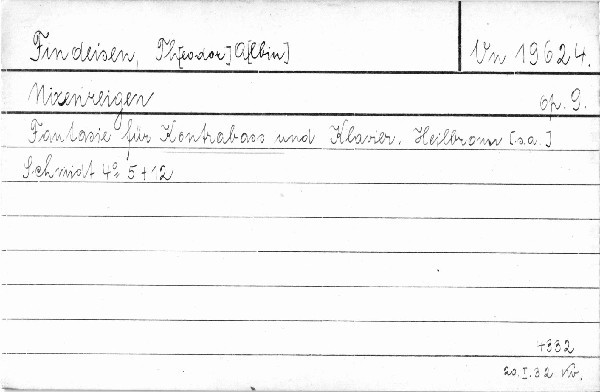 Findeisen, Th[eodor] A[lbin]
Vn 19624.
Nixenreigen op. 9.
Fantasie für Kontrabass und Klavier. Heilbronn [s.a.]
Schmidt 4° 5+12
+332
20.I.32 Kb.